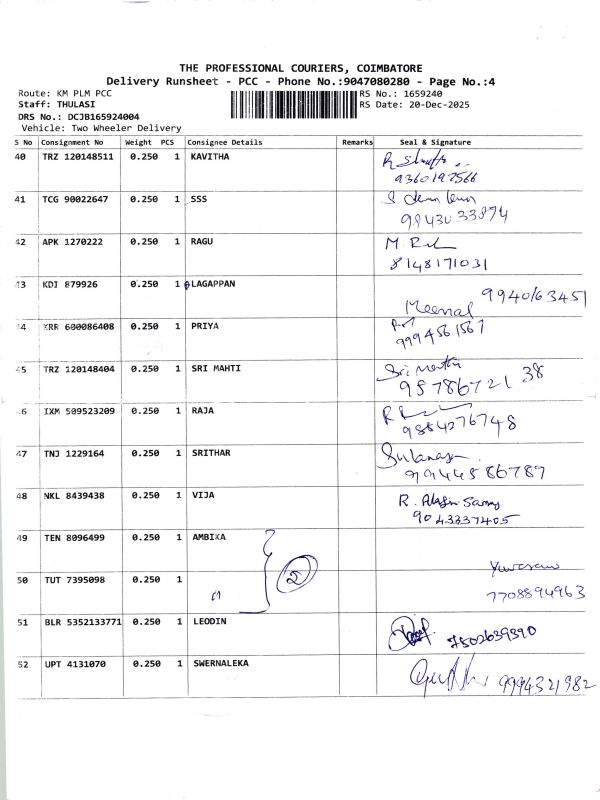 THE PROFESSIONAL COURIERS, COIMBATORE
Delivery Runsheet - PCC - Phone No.:9047080280 - Page No.:4
Route: KM PLM PCC RS No.: 1659240
Staff: THULASI RS Date: 20-Dec-2025
DRS No.: DCJB165924004
Vehicle: Two Wheeler Delivery
S No Consignment No Weight PCS Consignee Details Remarks Seal & Signature
40 TRZ 120148511 0.250 1 KAVITHA
9360197566
41 TCG 90022647 0.250 1 SSS
9843033894
42 APK 1270222 0.250 1 RAGU M. R
8148171031
43 KDI 879926 0.250 1 LAGAPPAN 9940163451
Meenal
44 KRR 600086408 0.250 1 PRIYA
9994561567
45 TRZ 120148404 0.250 1 SRI MAHTI Sri Mathi
9578672138
46 IXM 509523209 0.250 1 RAJA
9884276748
47 TNJ 1229164 0.250 1 SRITHAR
9944586789
48 NKL 8439438 0.250 1 VIJA R. Alagu Samy
9043337405
49 TEN 8096499 0.250 1 AMBIKA
50 TUT 7395098 0.250 1 " 2
7708894963
51 BLR 5352133771 0.250 1 LEODIN 7502639390
52 UPT 4131070 0.250 1 SWERNALEKA 9994321982